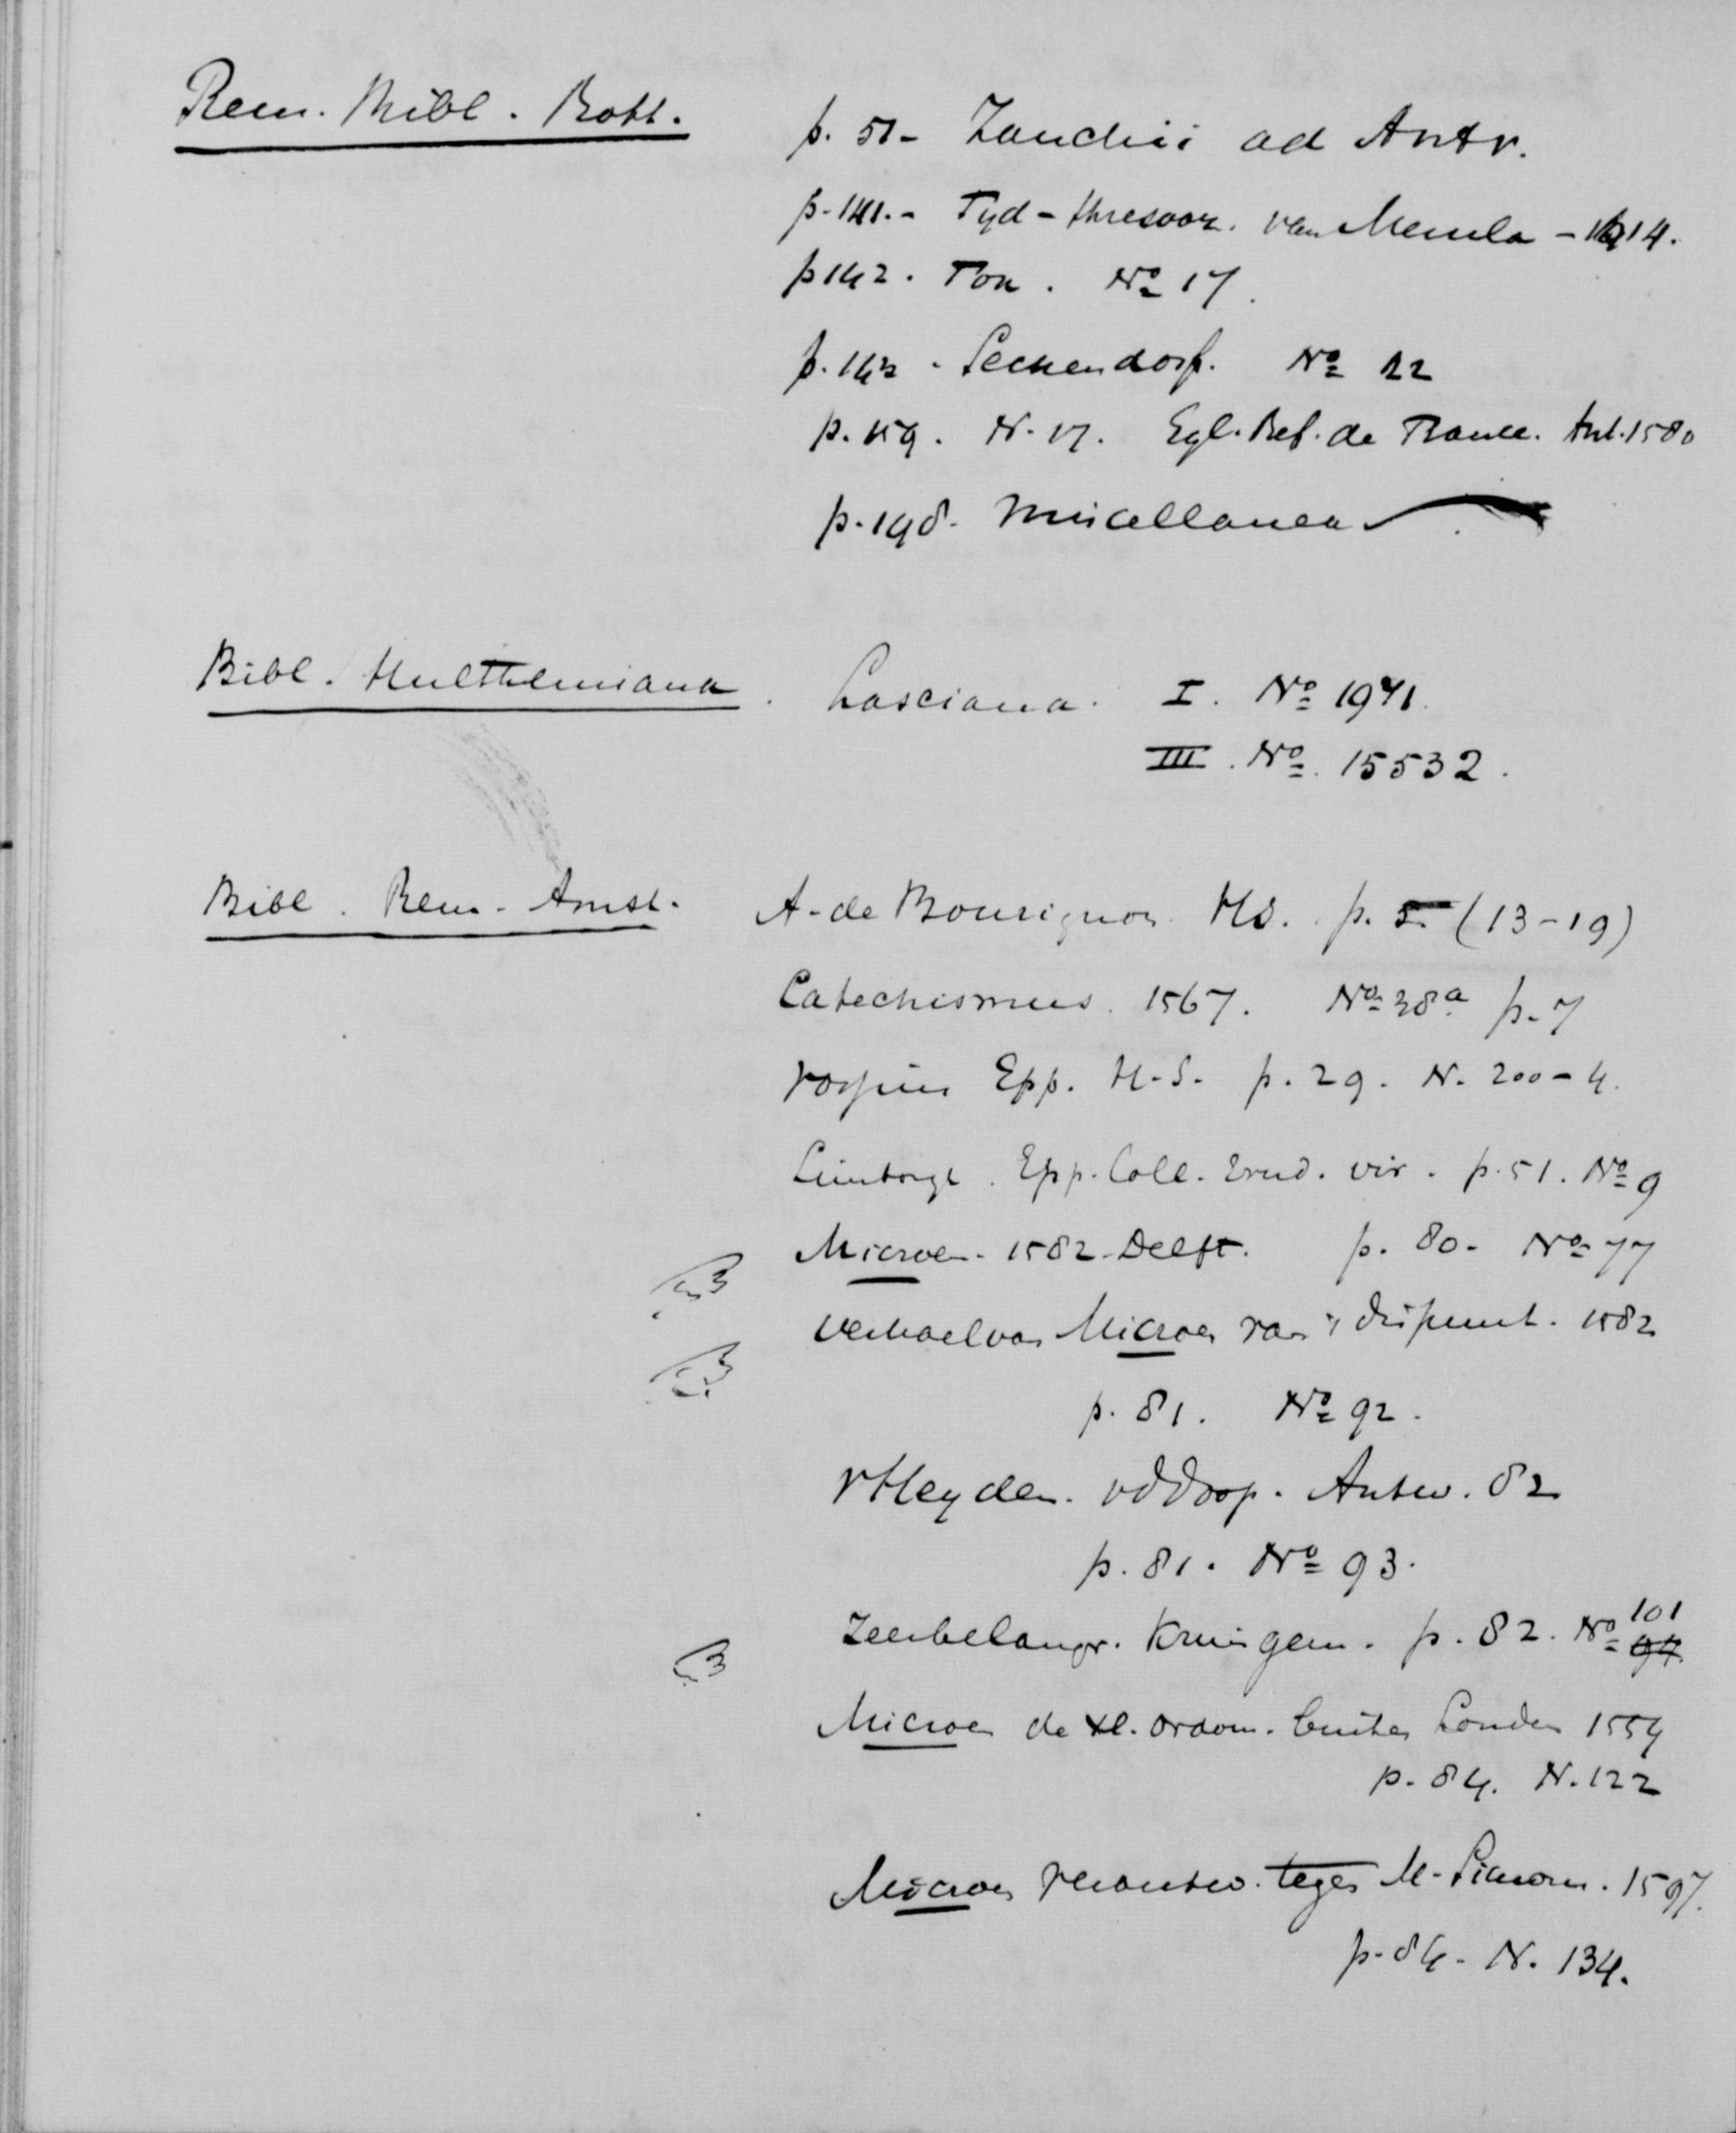 Rem. Bibl. Rott.
p. 51 - Zanchii ad Antv.
p. 141. - Tyd-thresoor. van Merula - 1614.
p 142. Fox. No 17.
p. 142 - Seckendorf. No 22
p. 159. N. 17. Egl. Ref. de France. Ant. 1580
p. 198. Miscellanea
Bibl. Hulthemiana. Lasciana. I. No 1971.
III. No. 15532.
Bibl. Rem. Amst. A. de Bourignon HS. p. 5 (13-19)
Catechismus. 1567. No 38a p. 7
Vossius Epp. H.S. p. 29. N. 200-4.
Limborgh. Epp. Coll. Erud. vir. p. 51. No 9
Micron. 1582. Delft. p. 80. No 77
Verhael van Micron van 't disput. 1582
p. 81. No 92.
vHeyden. vd doop. Antw. 82
p. 81. No 93.
Zeer belangr. Kruisgem. p. 82. No 101 94
Micron de Xl. ordonn. buiten Londen 1554
p. 84. N. 122
Micron verantw. tegen M. Simons. 1597.
p. 84. N. 134.